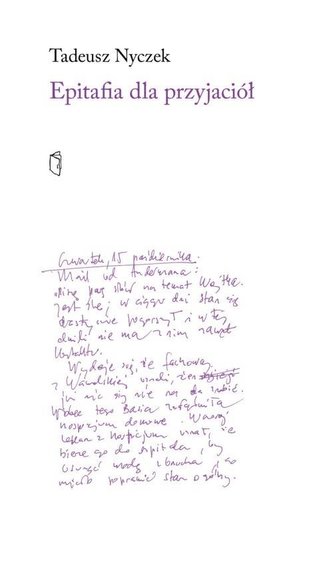 Tadeusz Nyczek
Epitafia dla przyjaciół
Czwartek, 15 października.
Mail od
parę słów na temat Wojtka.
jest źle; w ciągu dni stan się
drastycznie pogorszył i w tej
chwili nie ma z nim nawet
kontaktu.
Wydaje się, że fachowcy
z
już nic się nie da zrobić.
Wobec tego Basia załatwiła
hospicjum domowe. Wczoraj
lekarz z hospicjum uznał, że
bierze go do szpitala, by
usunąć wodę z brzucha, co
może poprawić stan ogólny.